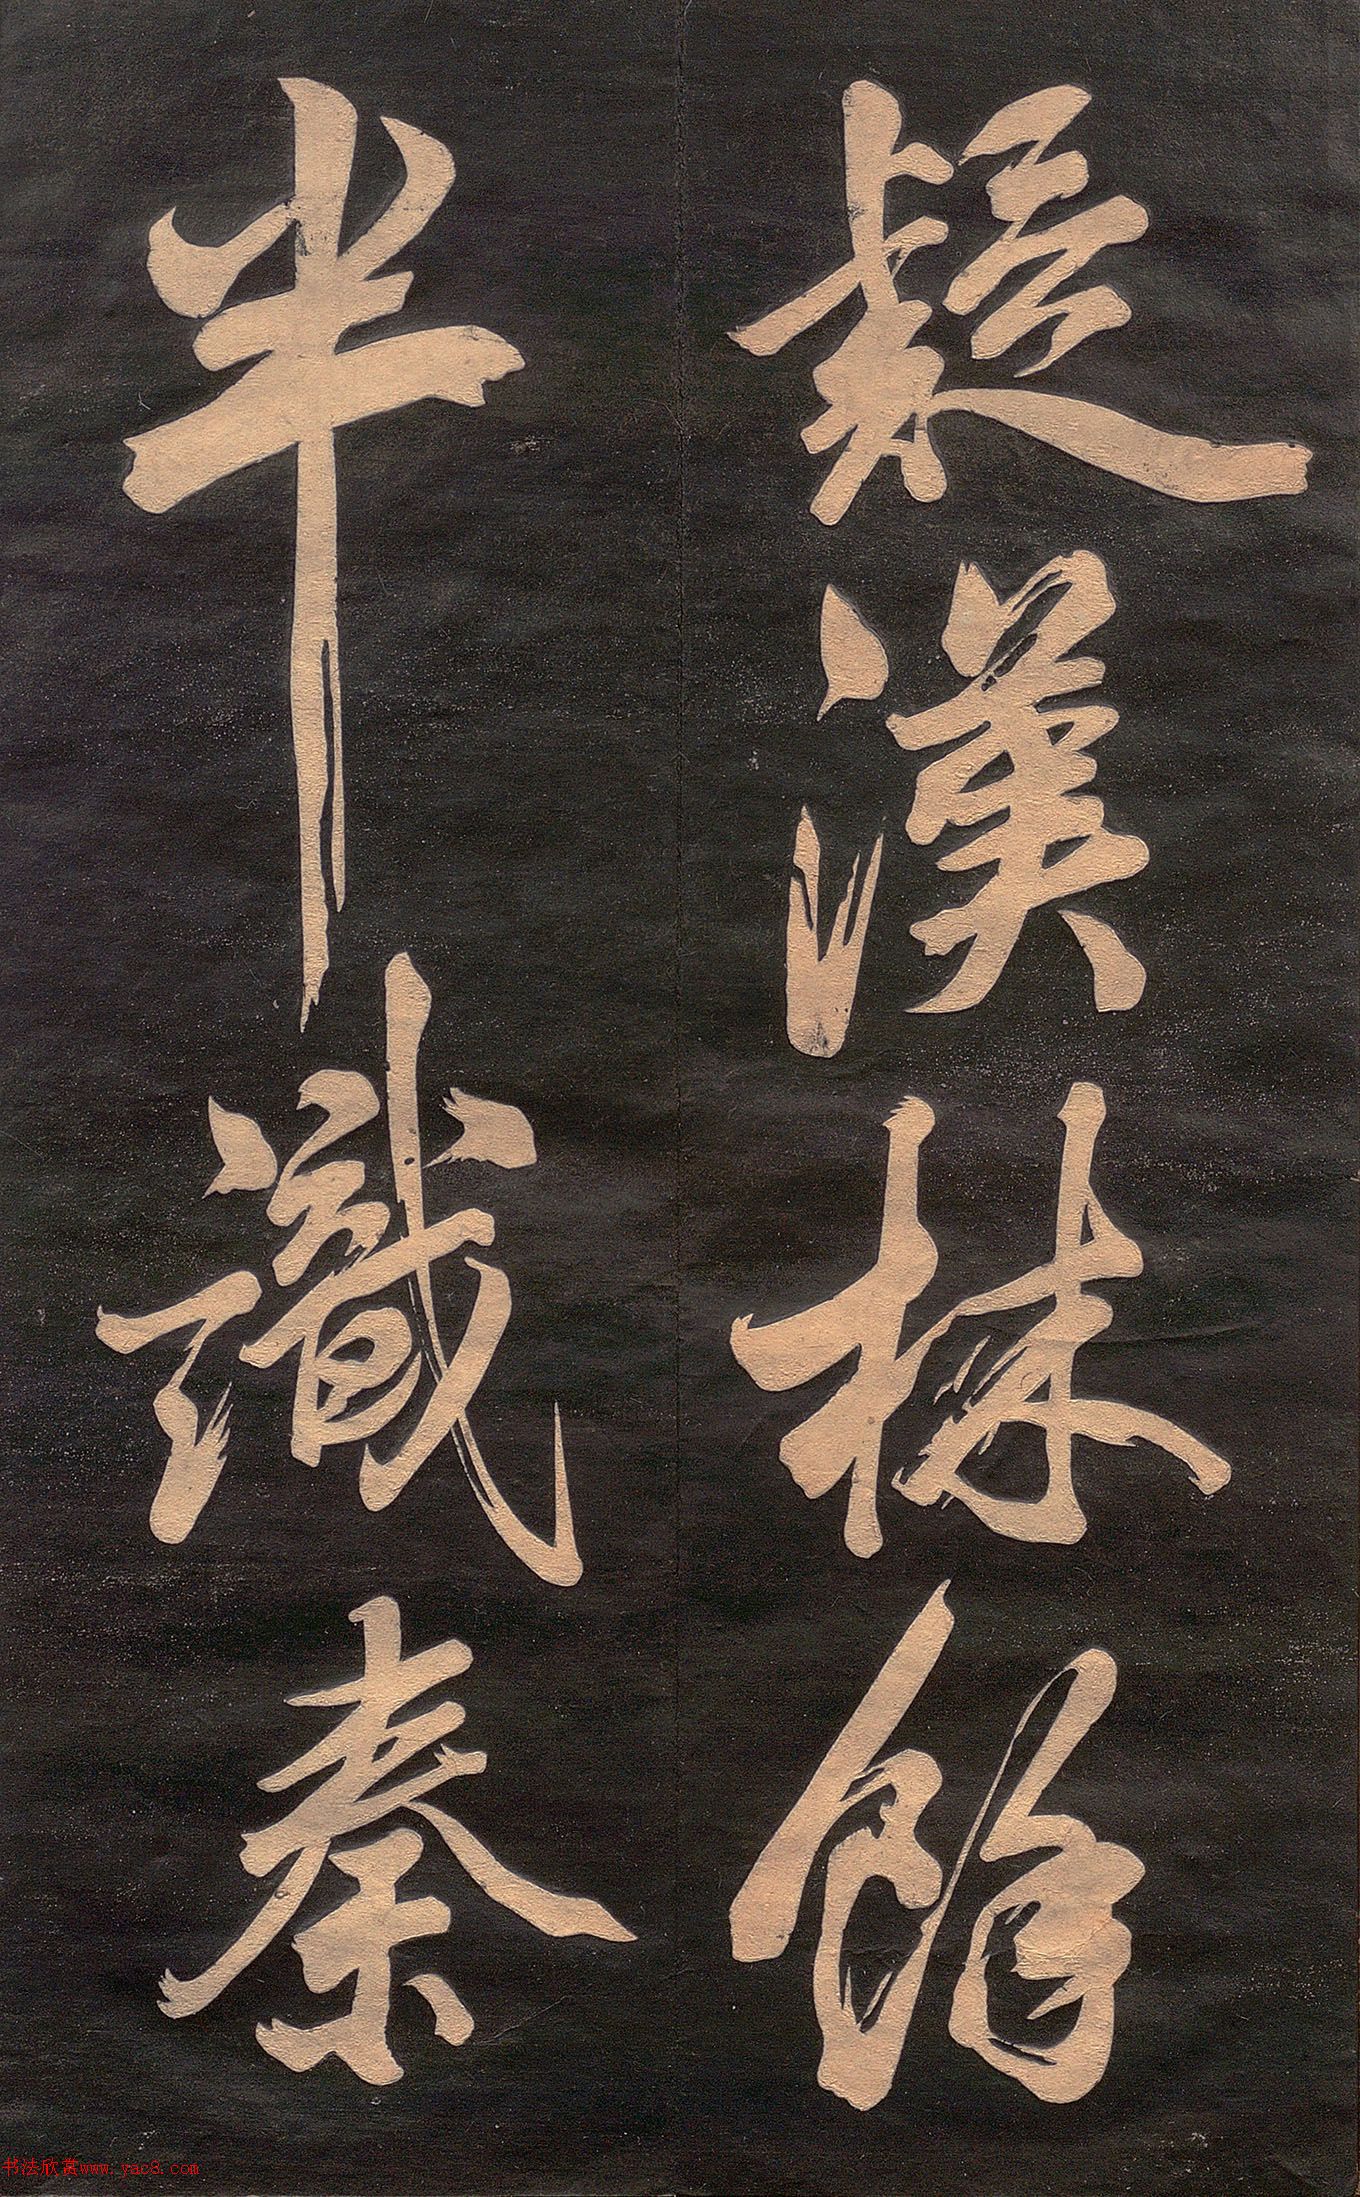 疑漢林餘
半識秦
书法欣赏www.yac8.com